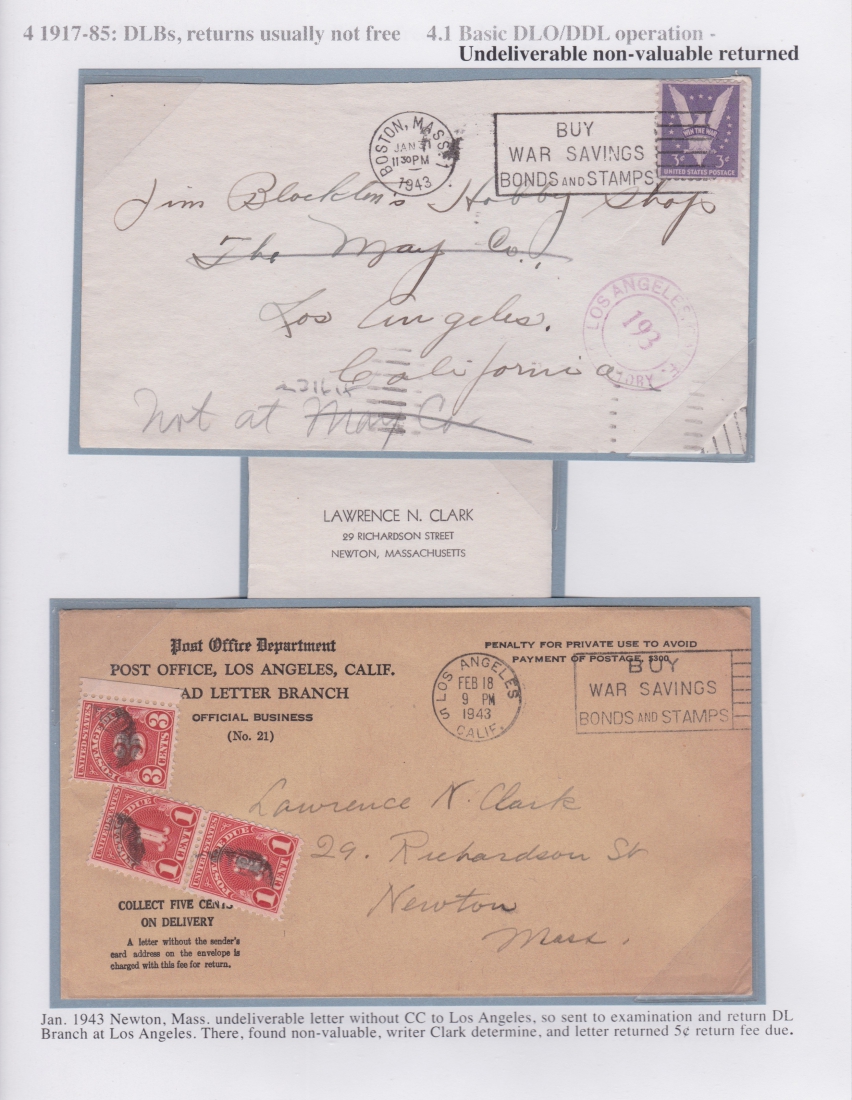 4 1917-85: DLBs, returns usually not free 4.1 Basic DLO/DDL operation -
Undeliverable non-valuable returned
BOSTON, MASS. 1
JAN 31
11 30 PM
1943
BUY
WAR SAVINGS
BONDS AND STAMPS
WIN THE WAR
3¢ 3¢
UNITED STATES POSTAGE
Jim Blockton's Hobby Shop
The May Co.,
Los Angeles.
California
LOS ANGELES
193
Not at May Co
LAWRENCE N. CLARK
29 RICHARDSON STREET
NEWTON, MASSACHUSETTS
Post Office Department
POST OFFICE, LOS ANGELES, CALIF.
AD LETTER BRANCH
OFFICIAL BUSINESS
(No. 21)
PENALTY FOR PRIVATE USE TO AVOID
PAYMENT OF POSTAGE, $300
LOS ANGELES 5
FEB 18
9 PM
1943
CALIF.
BUY
WAR SAVINGS
BONDS AND STAMPS
UNITED STATES
3 CENTS 3
UNITED STATES
POSTAGE DUE
1 CENT 1
UNITED STATES
POSTAGE DUE
1 CENT 1
Lawrence N. Clark
29. Richardson St
Newton
Mass.
COLLECT FIVE CENTS
ON DELIVERY
A letter without the sender's
card address on the envelope is
charged with this fee for return.
Jan. 1943 Newton, Mass. undeliverable letter without CC to Los Angeles, so sent to examination and return DL
Branch at Los Angeles. There, found non-valuable, writer Clark determine, and letter returned 5¢ return fee due.